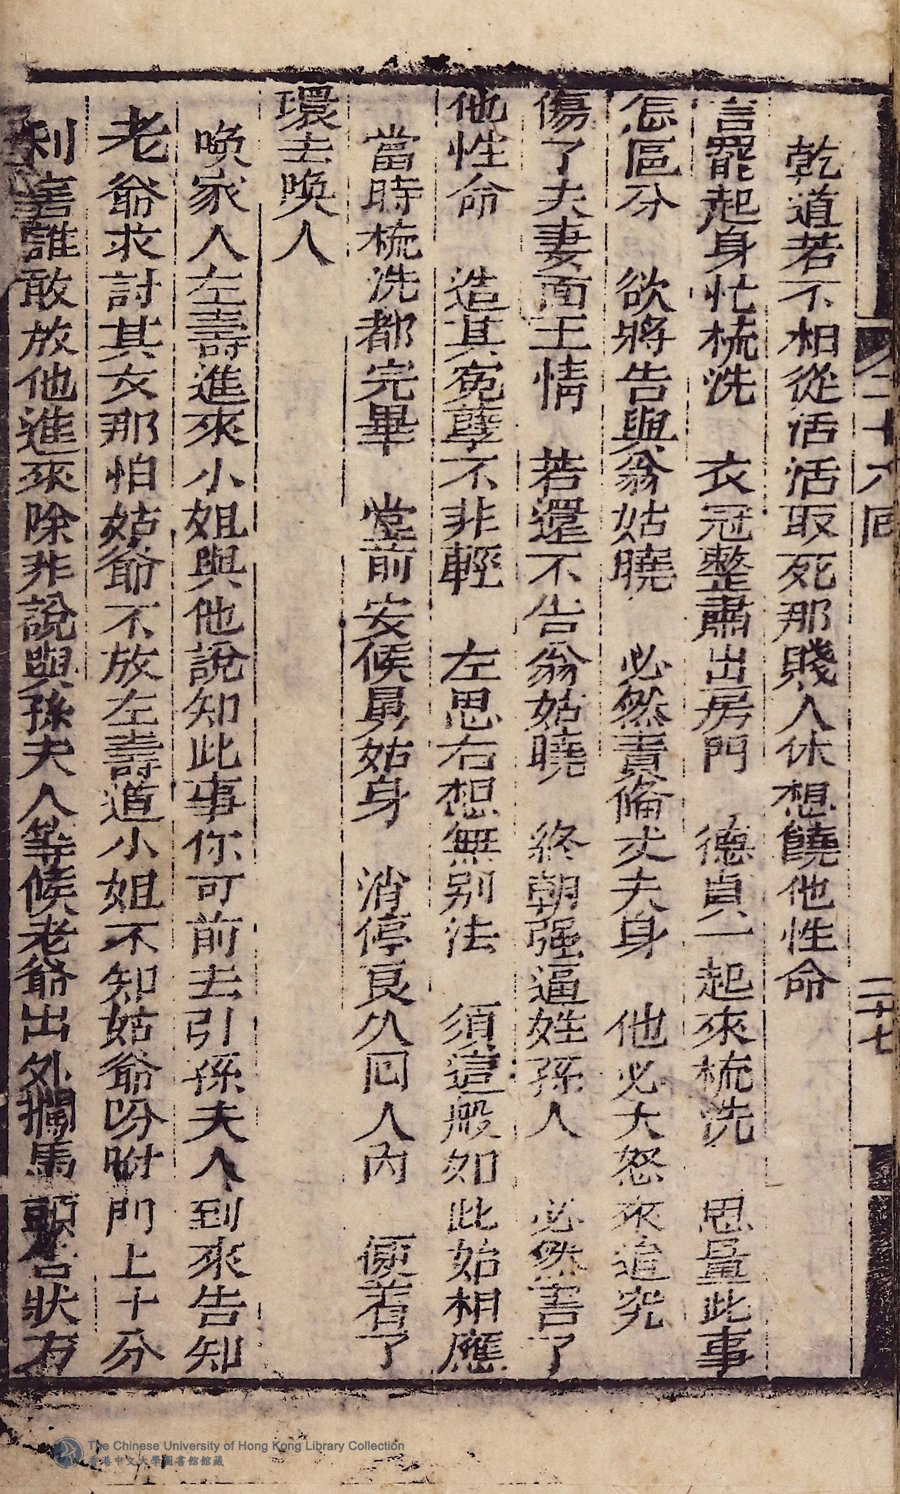 二十六囘
二十七
乾道若不相從活活取死那賤人休想饒他性命
言罷起身忙梳洗 衣冠整肅出房門 德貞一起來梳洗 思量此事
怎區分 欲將告與翁姑曉 必然責俻丈夫身 他必大怒來追究
傷了夫妻面上情 若還不告翁姑曉 終朝强逼姓孫人 必然害了
他性命 造其寃孽不非輕 左思右想無别法 須這般如此始相應
當時梳洗都完畢 堂前安候舅姑身 消停良久囘人內 便着了
環去喚人
喚家人左壽進來小姐與他說知此事你可前去引孫夫人到來告知
老爺求討其女那怕姑爺不放左壽道小姐不知姑爺吩咐門上十分
利害誰敢放他進來除非說與孫夫人等候老爺出外攔馬頭告狀方
The Chinese University of Hong Kong Library Collection
香港中文大學圖書館館藏